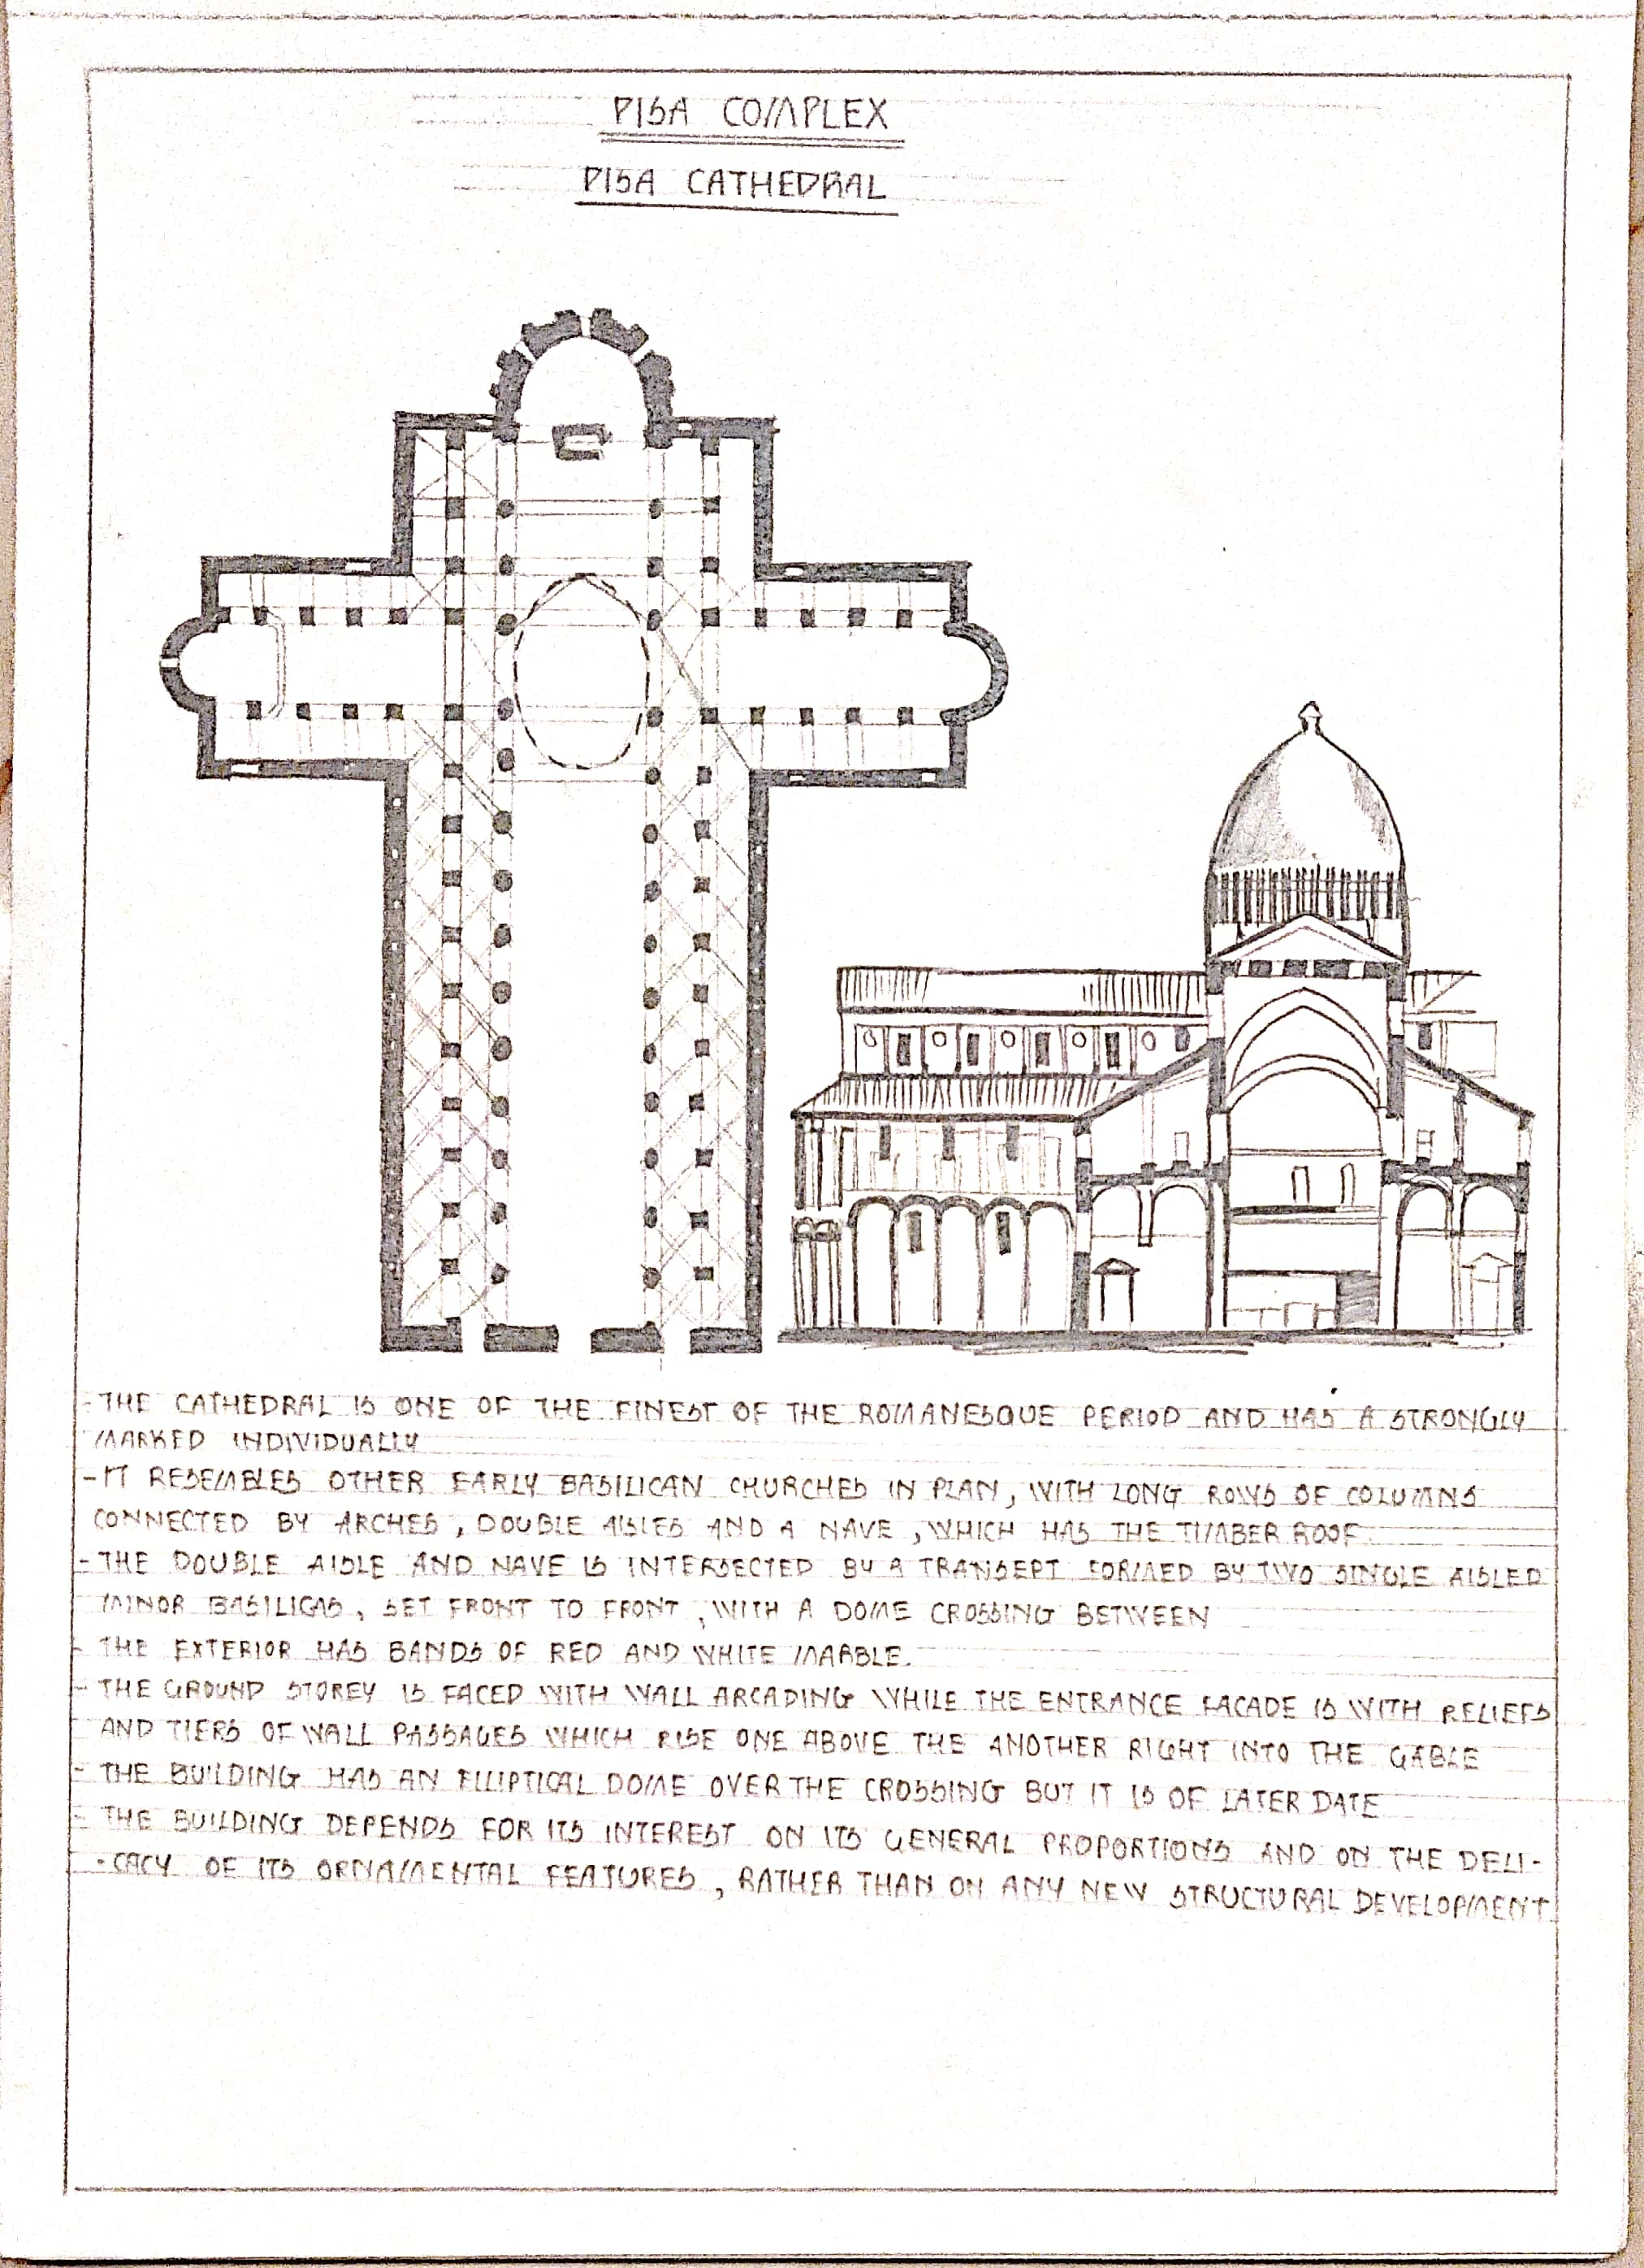 PISA COMPLEX
PISA CATHEDRAL
-THE CATHEDRAL IS ONE OF THE FINEST OF THE ROMANESQUE PERIOD AND HAS A STRONGLY
MARKED INDIVIDUALLY
-IT RESEMBLES OTHER EARLY BASILICAN CHURCHES IN PLAN, WITH LONG ROWS OF COLUMNS
CONNECTED BY ARCHES, DOUBLE AISLES AND A NAVE, WHICH HAS THE TIMBER ROOF.
-THE DOUBLE AISLE AND NAVE IS INTERSECTED BY A TRANSEPT FORMED BY TWO SINGLE AISLED
MINOR BASILICAS, SET FRONT TO FRONT, WITH A DOME CROSSING BETWEEN
- THE EXTERIOR HAS BANDS OF RED AND WHITE MARBLE.
- THE GROUND STOREY IS FACED WITH WALL ARCADING WHILE THE ENTRANCE FACADE IS WITH RELIEFS
AND TIERS OF WALL PASSAGES WHICH RISE ONE ABOVE THE ANOTHER RIGHT INTO THE GABLE
- THE BUILDING HAS AN ELLIPTICAL DOME OVER THE CROSSING BUT IT IS OF LATER DATE
- THE BUILDING DEPENDS FOR ITS INTEREST ON ITS GENERAL PROPORTIONS AND ON THE DELI-
-CACY OF ITS ORNAMENTAL FEATURES, RATHER THAN ON ANY NEW STRUCTURAL DEVELOPMENT.